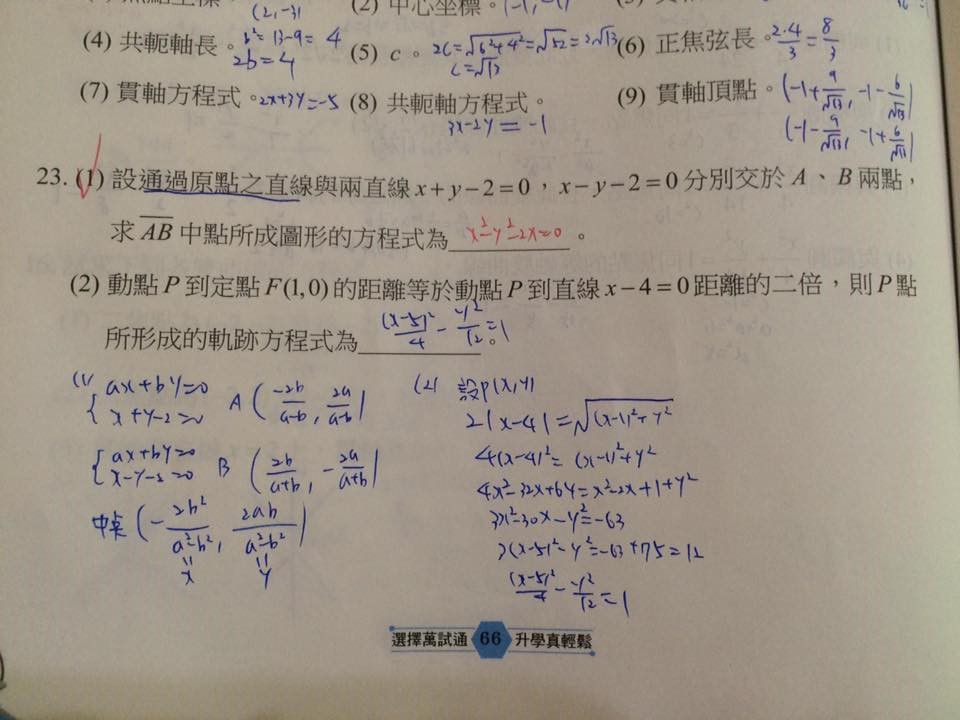 (2,-3)
(2) 中心坐標。(-1,-1)
(4) 共軛軸長。b²=13-9=4
2b=4
(5) c。2c=√6²+4²=√52=2√13
c=√13
(6) 正焦弦長。2·4/3=8/3
(7) 貫軸方程式。2x+3y=-5
(8) 共軛軸方程式。
3x-2y=-1
(9) 貫軸頂點。(-1+9/√13, -1-6/√13)
(-1-9/√13, -1+6/√13)
23. (1) 設通過原點之直線與兩直線 x+y-2=0,x-y-2=0 分別交於 A、B 兩點,
求 AB 中點所成圖形的方程式為 x²-y²-2x=0 。
(2) 動點 P 到定點 F(1,0) 的距離等於動點 P 到直線 x-4=0 距離的二倍,則 P 點
所形成的軌跡方程式為 (x-5)²/4 - y²/12=1 。
(1) { ax+by=0
x+y-2=0 A (-2b/a-b, 2a/a-b)
{ ax+by=0
x-y-2=0 B (2b/a+b, -2a/a+b)
中點 (-2b²/a²-b², 2ab/a²-b²)
= x = y
(2) 設P(x,y)
2|x-4|=√(x-1)²+y²
4(x-4)²=(x-1)²+y²
4x²-32x+64=x²-2x+1+y²
3x²-30x-y²=-63
3(x-5)²-y²=-63+75=12
(x-5)²/4 - y²/12=1
選擇萬試通 66 升學真輕鬆